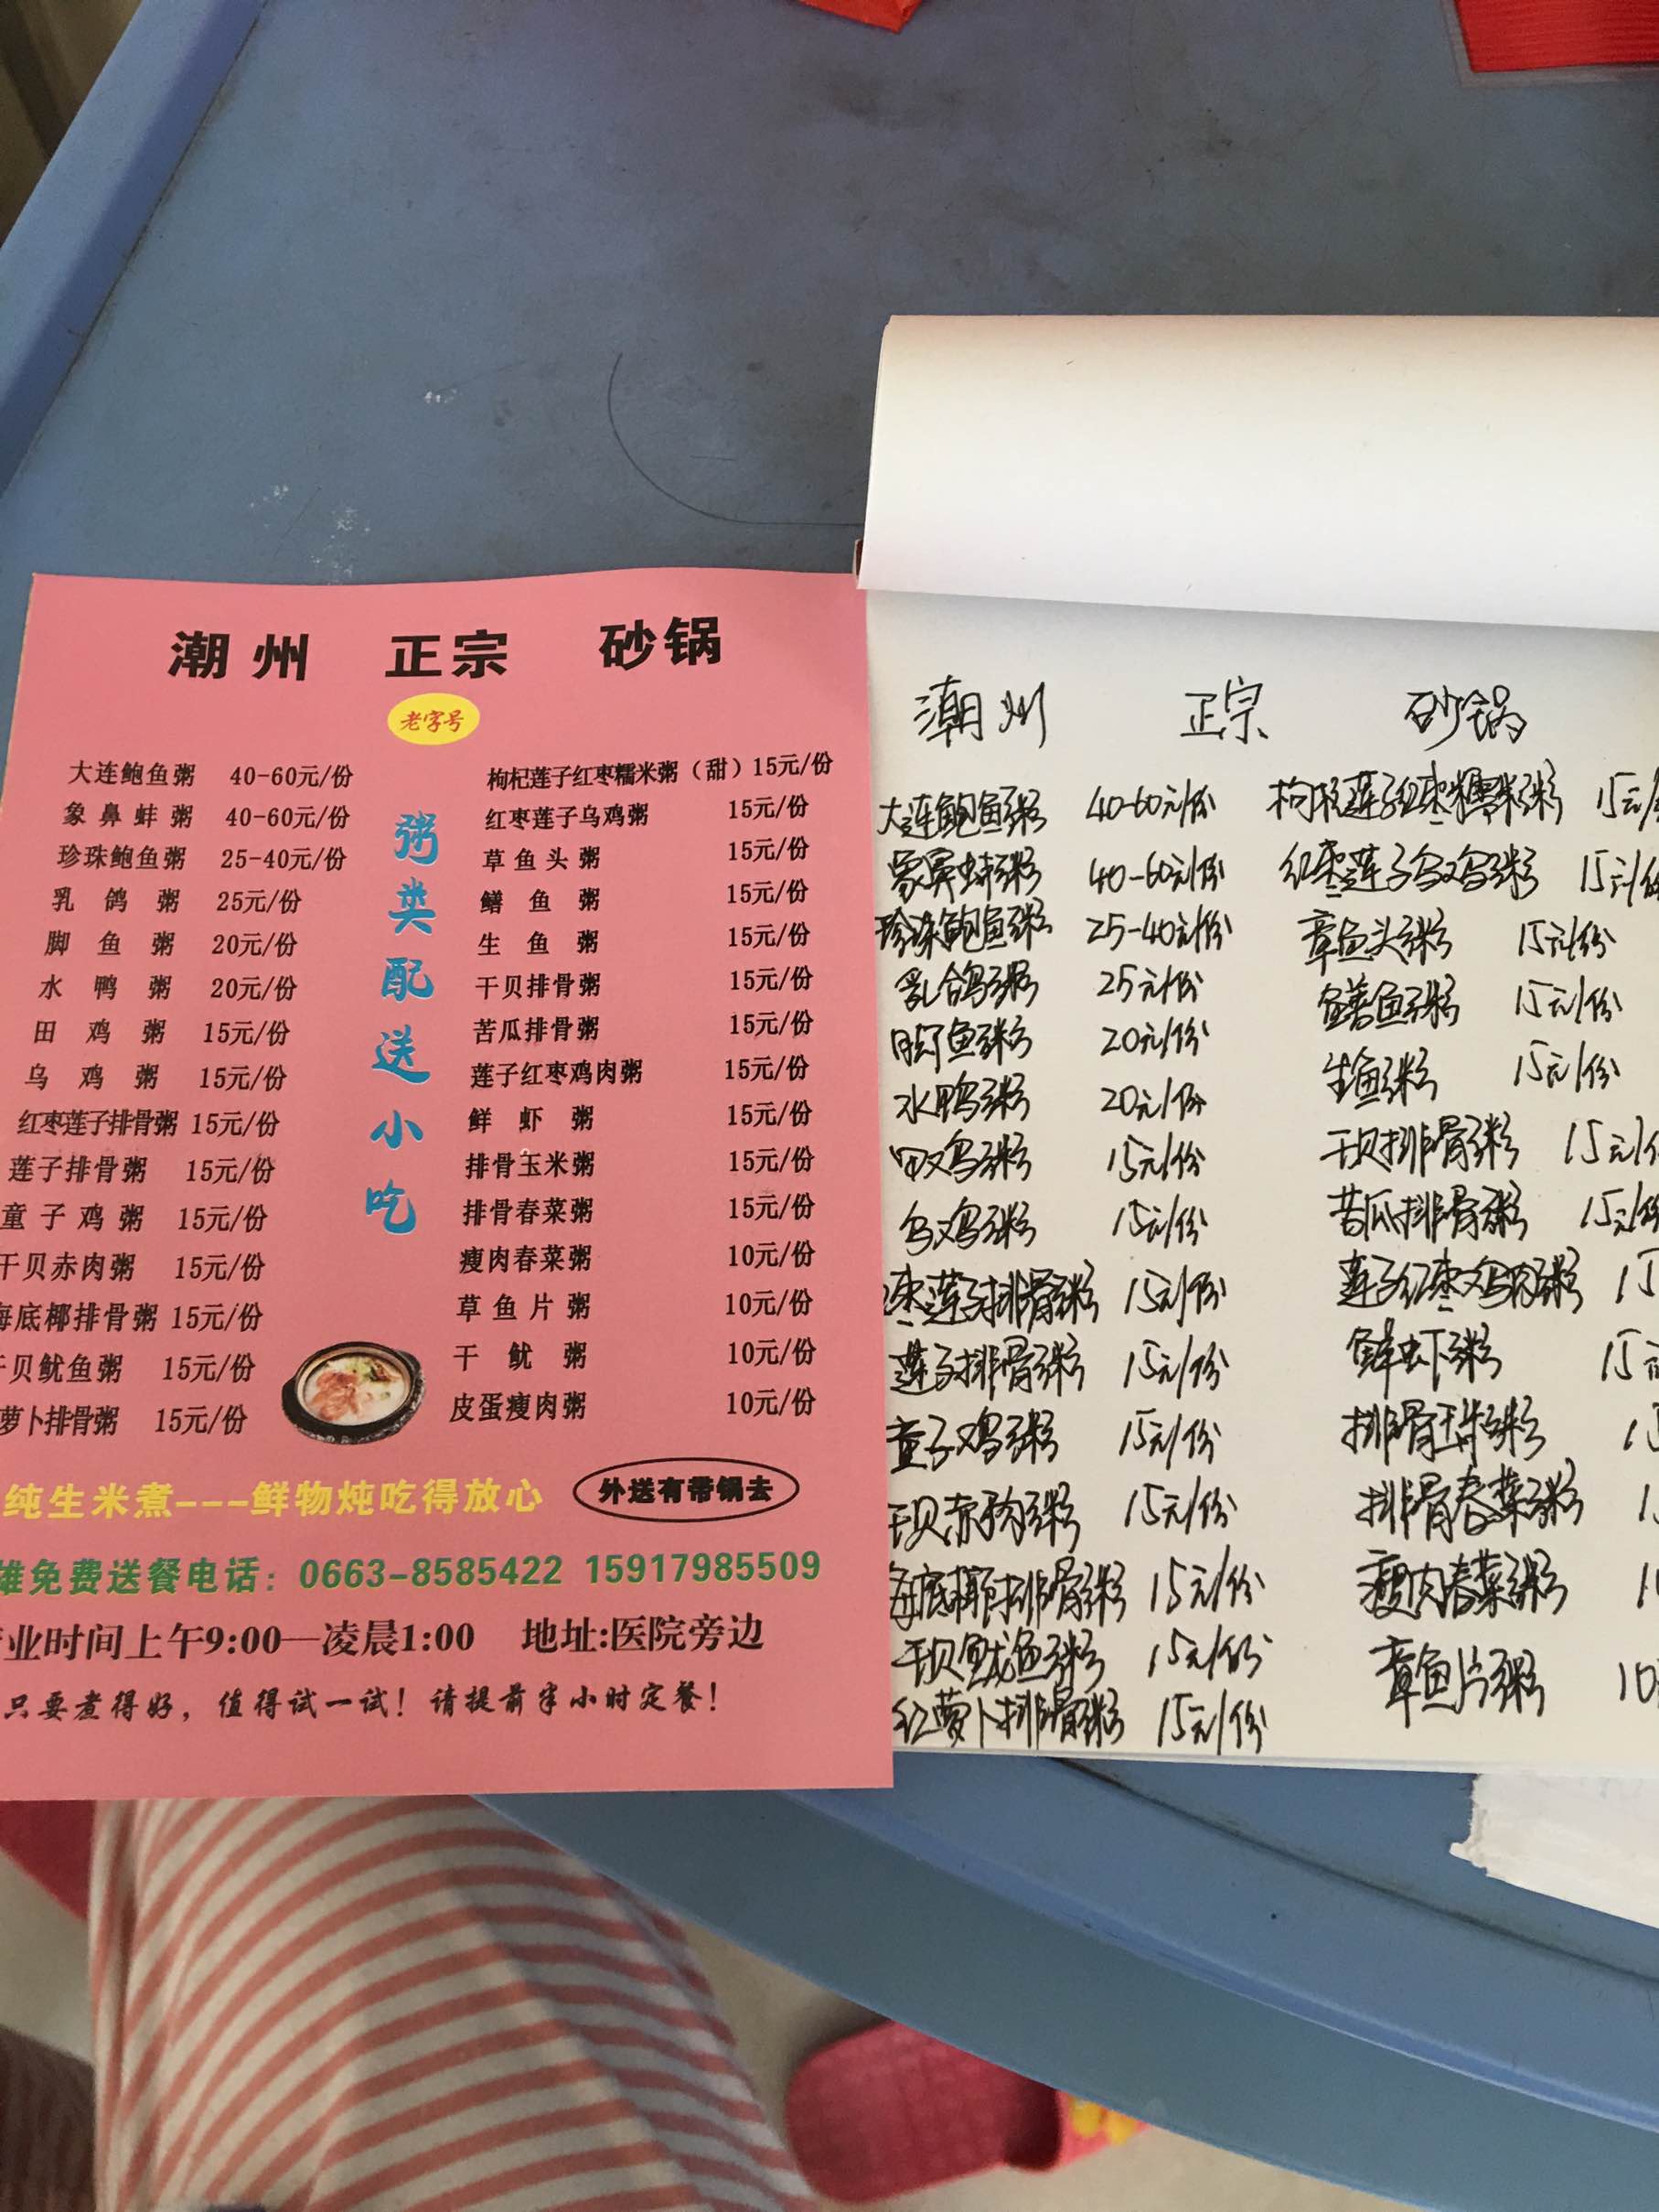 潮州 正宗 砂锅
老字号
粥类配送小吃
大连鲍鱼粥 40-60元/份
象鼻蚌粥 40-60元/份
珍珠鲍鱼粥 25-40元/份
乳鸽粥 25元/份
脚鱼粥 20元/份
水鸭粥 20元/份
田鸡粥 15元/份
乌鸡粥 15元/份
红枣莲子排骨粥 15元/份
莲子排骨粥 15元/份
童子鸡粥 15元/份
干贝赤肉粥 15元/份
海底椰排骨粥 15元/份
干贝鱿鱼粥 15元/份
萝卜排骨粥 15元/份
枸杞莲子红枣糯米粥（甜）15元/份
红枣莲子乌鸡粥 15元/份
草鱼头粥 15元/份
鳝鱼粥 15元/份
生鱼粥 15元/份
干贝排骨粥 15元/份
苦瓜排骨粥 15元/份
莲子红枣鸡肉粥 15元/份
鲜虾粥 15元/份
排骨玉米粥 15元/份
排骨春菜粥 15元/份
瘦肉春菜粥 10元/份
草鱼片粥 10元/份
干鱿粥 10元/份
皮蛋瘦肉粥 10元/份
纯生米煮---鲜物炖吃得放心
外送有带锅去
雄免费送餐电话：0663-8585422 15917985509
业时间上午9:00—凌晨1:00 地址:医院旁边
只要煮得好，值得试一试！请提前半小时定餐！
潮州 正宗 砂锅
大连鲍鱼粥 40-60元/份
象鼻蚌粥 40-60元/份
珍珠鲍鱼粥 25-40元/份
乳鸽粥 25元/份
脚鱼粥 20元/份
水鸭粥 20元/份
田鸡粥 15元/份
乌鸡粥 15元/份
枣莲子排骨粥 15元/份
莲子排骨粥 15元/份
童子鸡粥 15元/份
干贝赤肉粥 15元/份
海底椰排骨粥 15元/份
干贝鱿鱼粥 15元/份
红萝卜排骨粥 15元/份
枸杞莲子红枣糯米粥 15元/
红枣莲子乌鸡粥 15元/份
章鱼头粥 15元/份
鳝鱼粥 15元/份
生鱼粥 15元/份
干贝排骨粥 15元/份
苦瓜排骨粥 15元/份
莲子红枣鸡肉粥 15
鲜虾粥 15元
排骨玉米粥 15
排骨春菜粥 1
瘦肉春菜粥 1
章鱼片粥 10